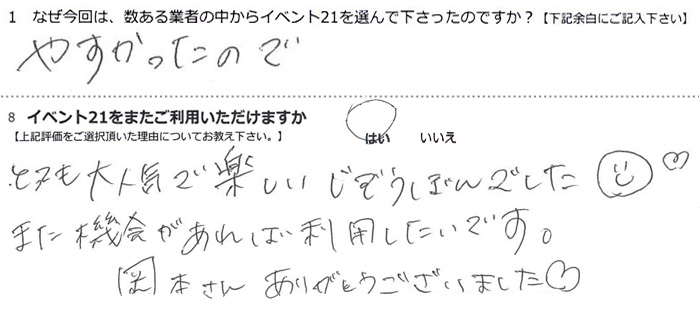 1 なぜ今回は、数ある業者の中からイベント21を選んで下さったのですか？【下記余白にご記入下さい】
やすかったので
8 イベント21をまたご利用いただけますか
【上記評価をご選択頂いた理由についてお教え下さい。】 はい いいえ
とても大人気で楽しいじぞうぼんでした
また機会があれば利用したいです。
岡本さん ありがとうございました